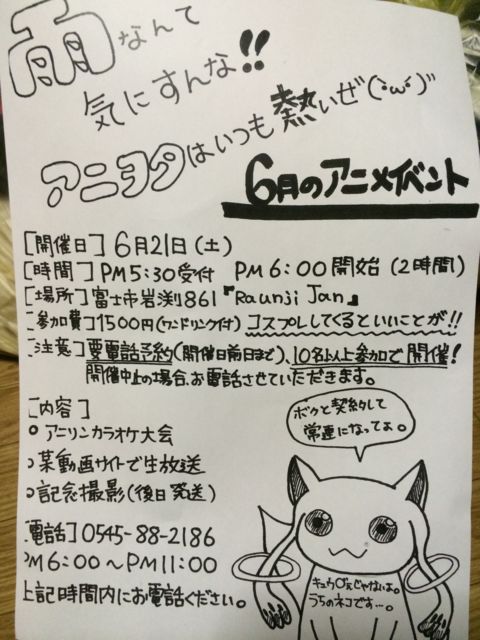 雨なんて
気にすんな!!
アニヲタはいつも熱いぜ(`・ω・´)
6月のアニメイベント
[開催日] 6月21日(土)
[時間] PM5:30受付 PM6:00開始(2時間)
[場所] 富士市岩渕861『Raunji Jan』
[参加費] 1500円(ワンドリンク付)コスプレしてくるといいことが!!
[注意] 要電話予約(開催日前日まで)、10名以上参加で開催!
開催中止の場合、お電話させていただきます。
[内容]
○アニソンカラオケ大会
○某動画サイトで生放送
○記念撮影(後日発送)
[電話] 0545-88-2186
PM6:00〜PM11:00
上記時間内にお電話ください。
ボクと契約して
常連になってよ。
キュウべぇじゃないよ。
うちのネコです…。